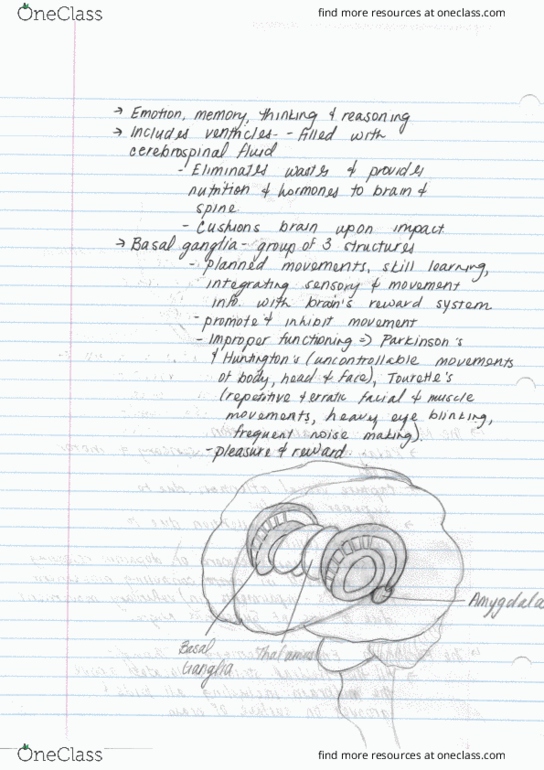 OneClass
find more resources at oneclass.com
→ Emotion, memory, thinking & reasoning
→ Includes ventricles - filled with
cerebrospinal fluid
- Eliminates wastes & provides
nutrition & hormones to brain &
spine
- Cushions brain upon impact
→ Basal ganglia - group of 3 structures
- planned movements, skill learning,
integrating sensory & movement
info. with brain's reward system
- promote & inhibit movement
- Improper functioning => Parkinson's
& Huntington's (uncontrollable movements
of body, head & face), Tourette's
(repetitive & erratic facial & muscle
movements, heavy eye blinking,
frequent noise making).
- pleasure & reward
Amygdala
Basal Thalamus
Ganglia
OneClass
find more resources at oneclass.com